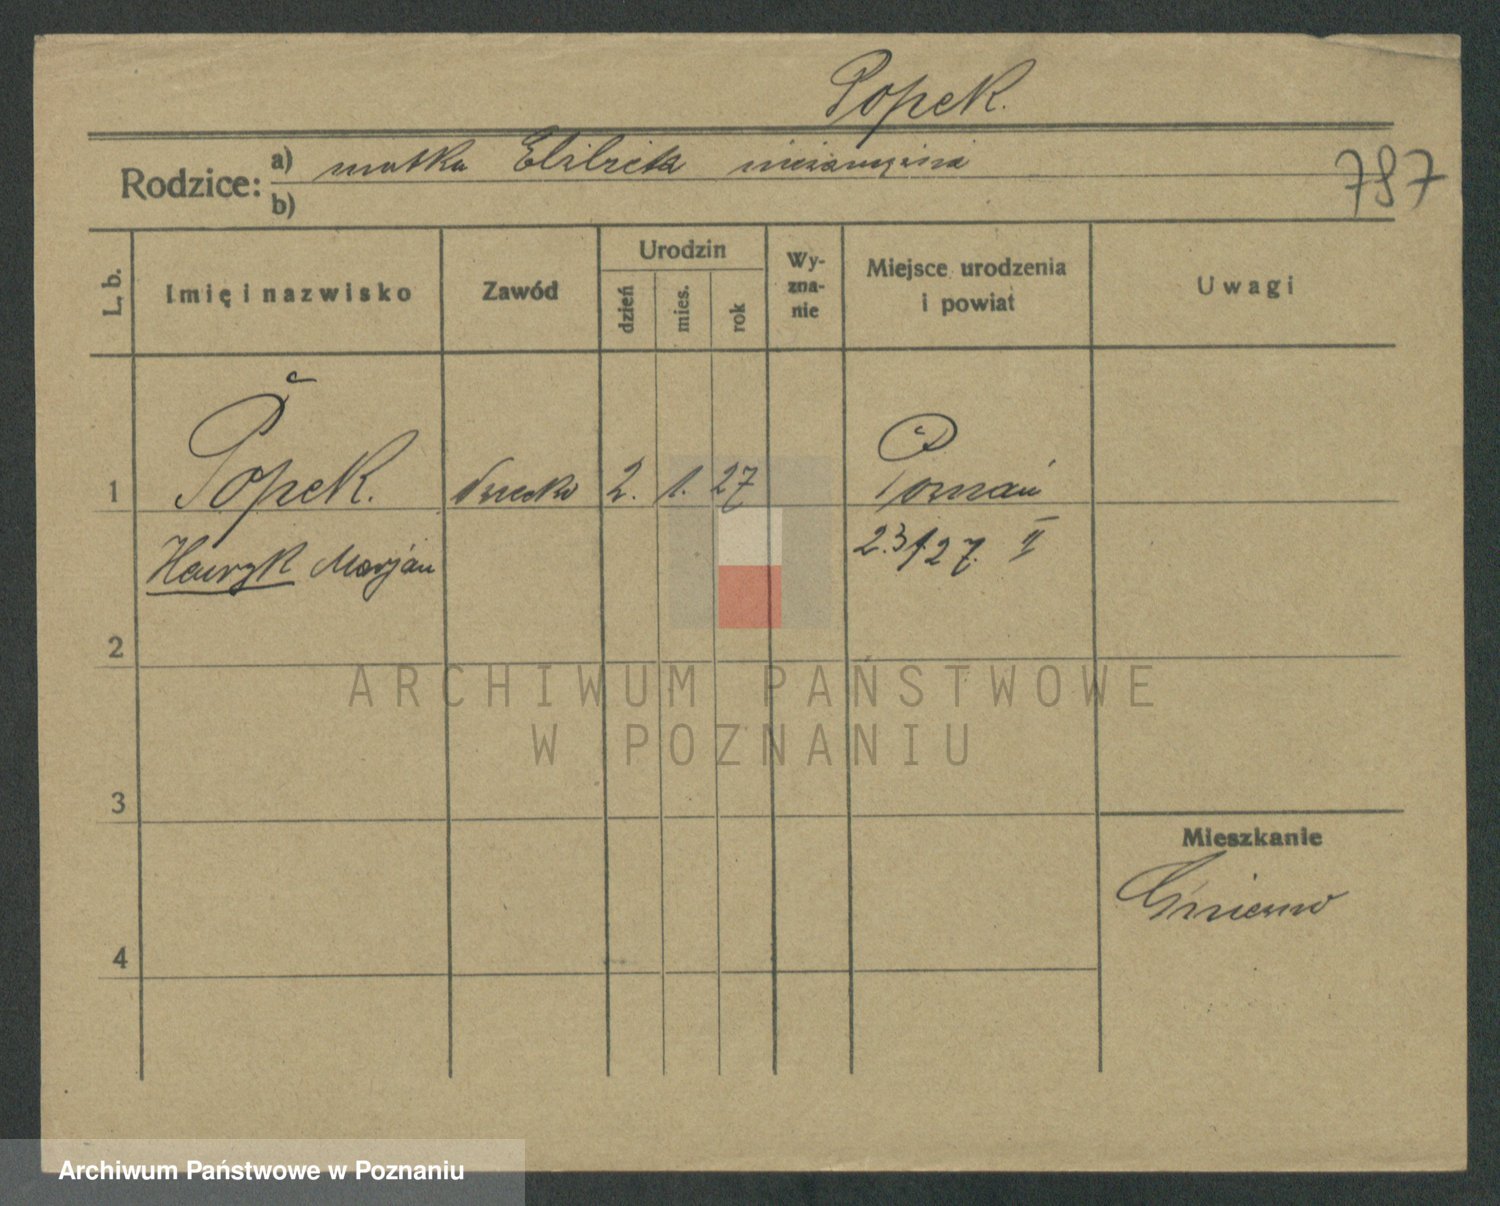 Popek.
Rodzice: a) matka Elżbieta niezamężna
b)
787
L. b. Imię i nazwisko Zawód Urodzin dzień mies. rok Wy-zna-nie Miejsce urodzenia i powiat Uwagi
1 Popek. dziecko 2. 1. 27 Poznań
Henryk Marjan 2.31.27. II
2
3
Mieszkanie
4
ARCHIWUM PAŃSTWOWE
W POZNANIU
Archiwum Państwowe w Poznaniu